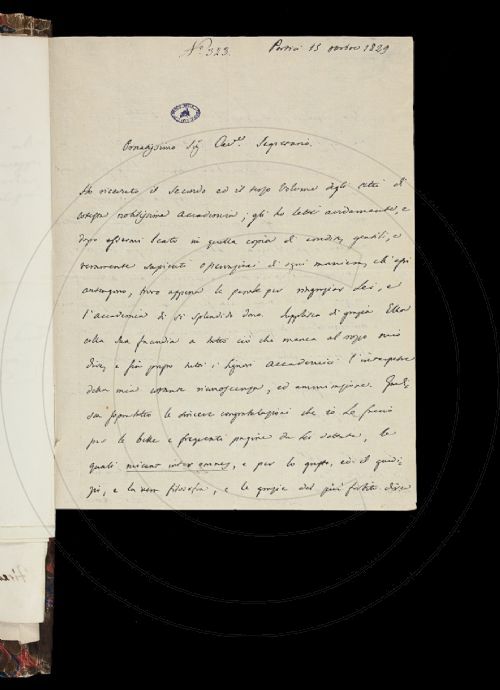 N.° 323.
Portici 15 ottobre 1829
Pregiatissimo Sig. Cav.re Segretario.
Ho ricevuto il Secondo ed il terzo Volume degli Atti di
cotesta nobilissima Accademia; gli ho letti avidamente, e
dopo essermi beato in quella copia di erudite, gentili, e
veramente sapienti di ogni maniera, ch'essi
, trovo appena le parole per ringraziar Lei, e
l'Accademia di sì splendido dono. Supplisca di grazia Ella
colla sua facondia a tutto ciò che manca al rozzo mio
dire, e fin presso tutti i Signori Accademici l'interprete
della mia costante riconoscenza, ed ammirazione. Gradi-
sca soprattutto le sincere congratulazioni che io Le faccio
per le belle e frequenti pagine da Lei dettate, le
quali micant inter omnes, e per lo gusto, ed il giudi-
zio, e la vera filosofia, e le grazie del più forbito dire